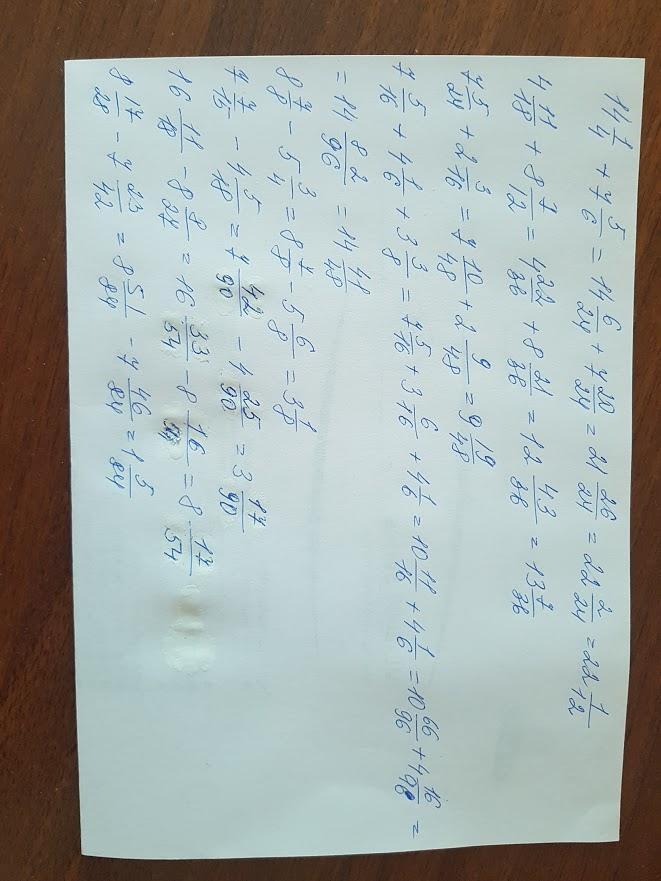 14 1/4 + 7 5/6 = 14 6/24 + 7 20/24 = 21 26/24 = 22 2/24 = 22 1/12
4 11/18 + 8 7/12 = 4 22/36 + 8 21/36 = 12 43/36 = 13 7/36
7 5/24 + 2 3/16 = 7 10/48 + 2 9/48 = 9 19/48
7 5/16 + 4 1/6 + 3 3/8 = 7 5/16 + 3 6/16 + 4 1/6 = 10 11/16 + 4 1/6 = 10 66/96 + 4 16/96 =
= 14 82/96 = 14 41/48
8 7/8 - 5 3/4 = 8 7/8 - 5 6/8 = 3 1/8
7 7/15 - 4 5/18 = 7 42/90 - 4 25/90 = 3 17/90
16 11/18 - 8 8/27 = 16 33/54 - 8 16/54 = 8 17/54
8 17/28 - 7 23/42 = 8 51/84 - 7 46/84 = 1 5/84